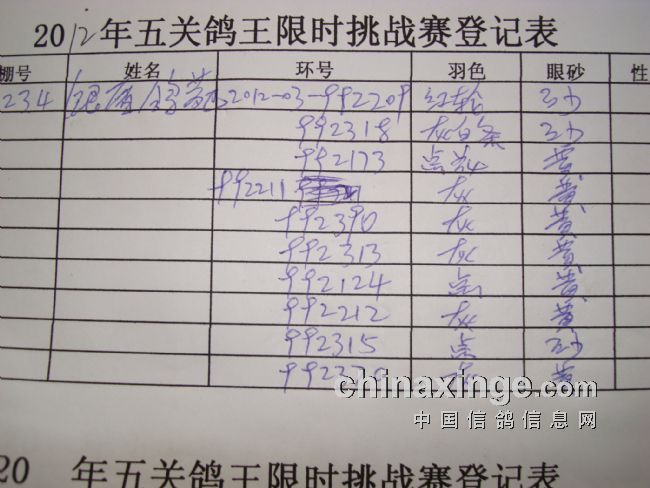 2012年五关鸽王限时挑战赛登记表
棚号 姓名 环号 羽色 眼砂 性
234 2012-03-992209 红轮 砂
992318 灰白条 砂
992173 点花 黄
992211 灰 黄
992390 灰 黄
992313 灰 黄
992124 点 黄
992212 灰 黄
992315 点 砂
灰 黄
chinaxinge.com
中国信鸽信息网
20 年五关鸽王限时挑战赛登记表